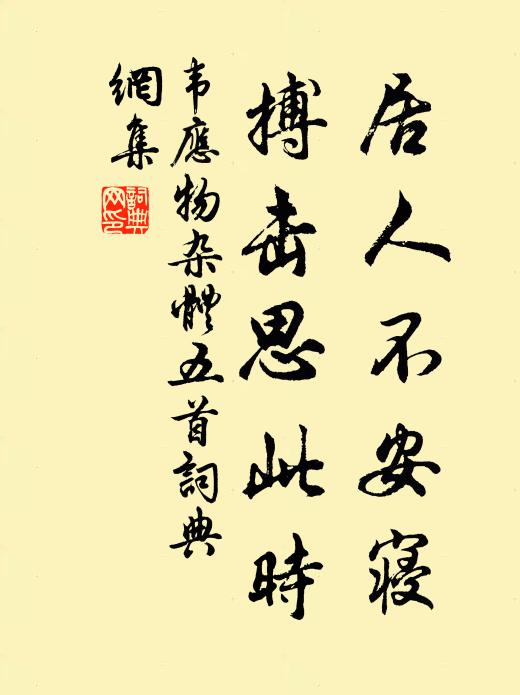 居人不安寝
搏击思此時
韦應物杂體五首詞典
網集
詞典
网印